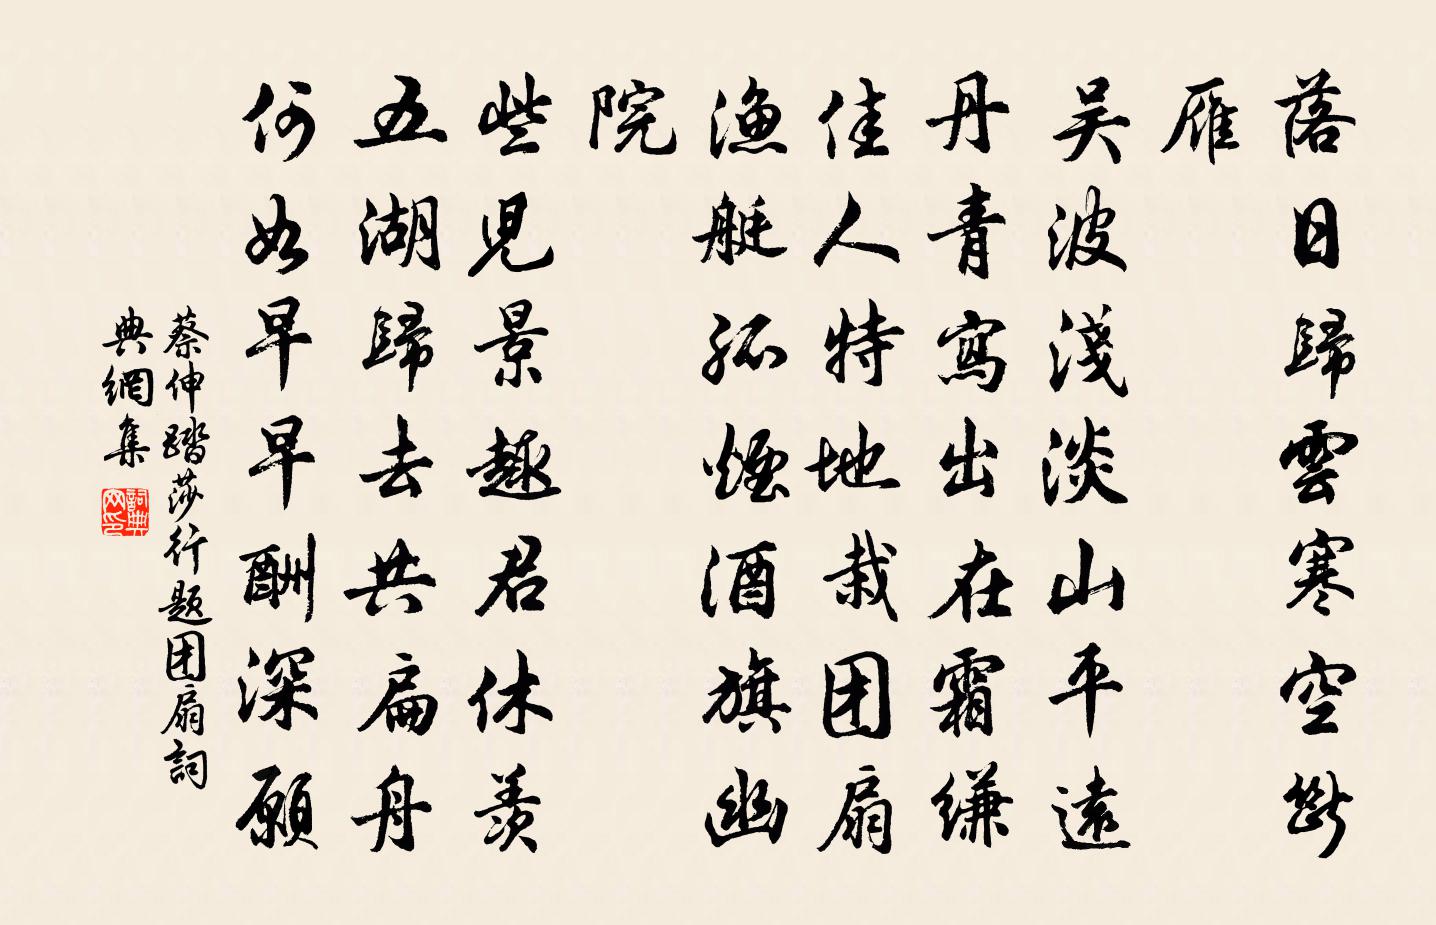 落日歸雲寒空斷
雁
吴波淺淡山平遠
丹青寫出在霜縑
佳人特地栽团扇
漁艇孤煙酒旗幽
院
些兒景趣君休羨
五湖歸去共扁舟
何如早早酬深願
蔡伸踏莎行题团扇詞
典網集
詞典
网印